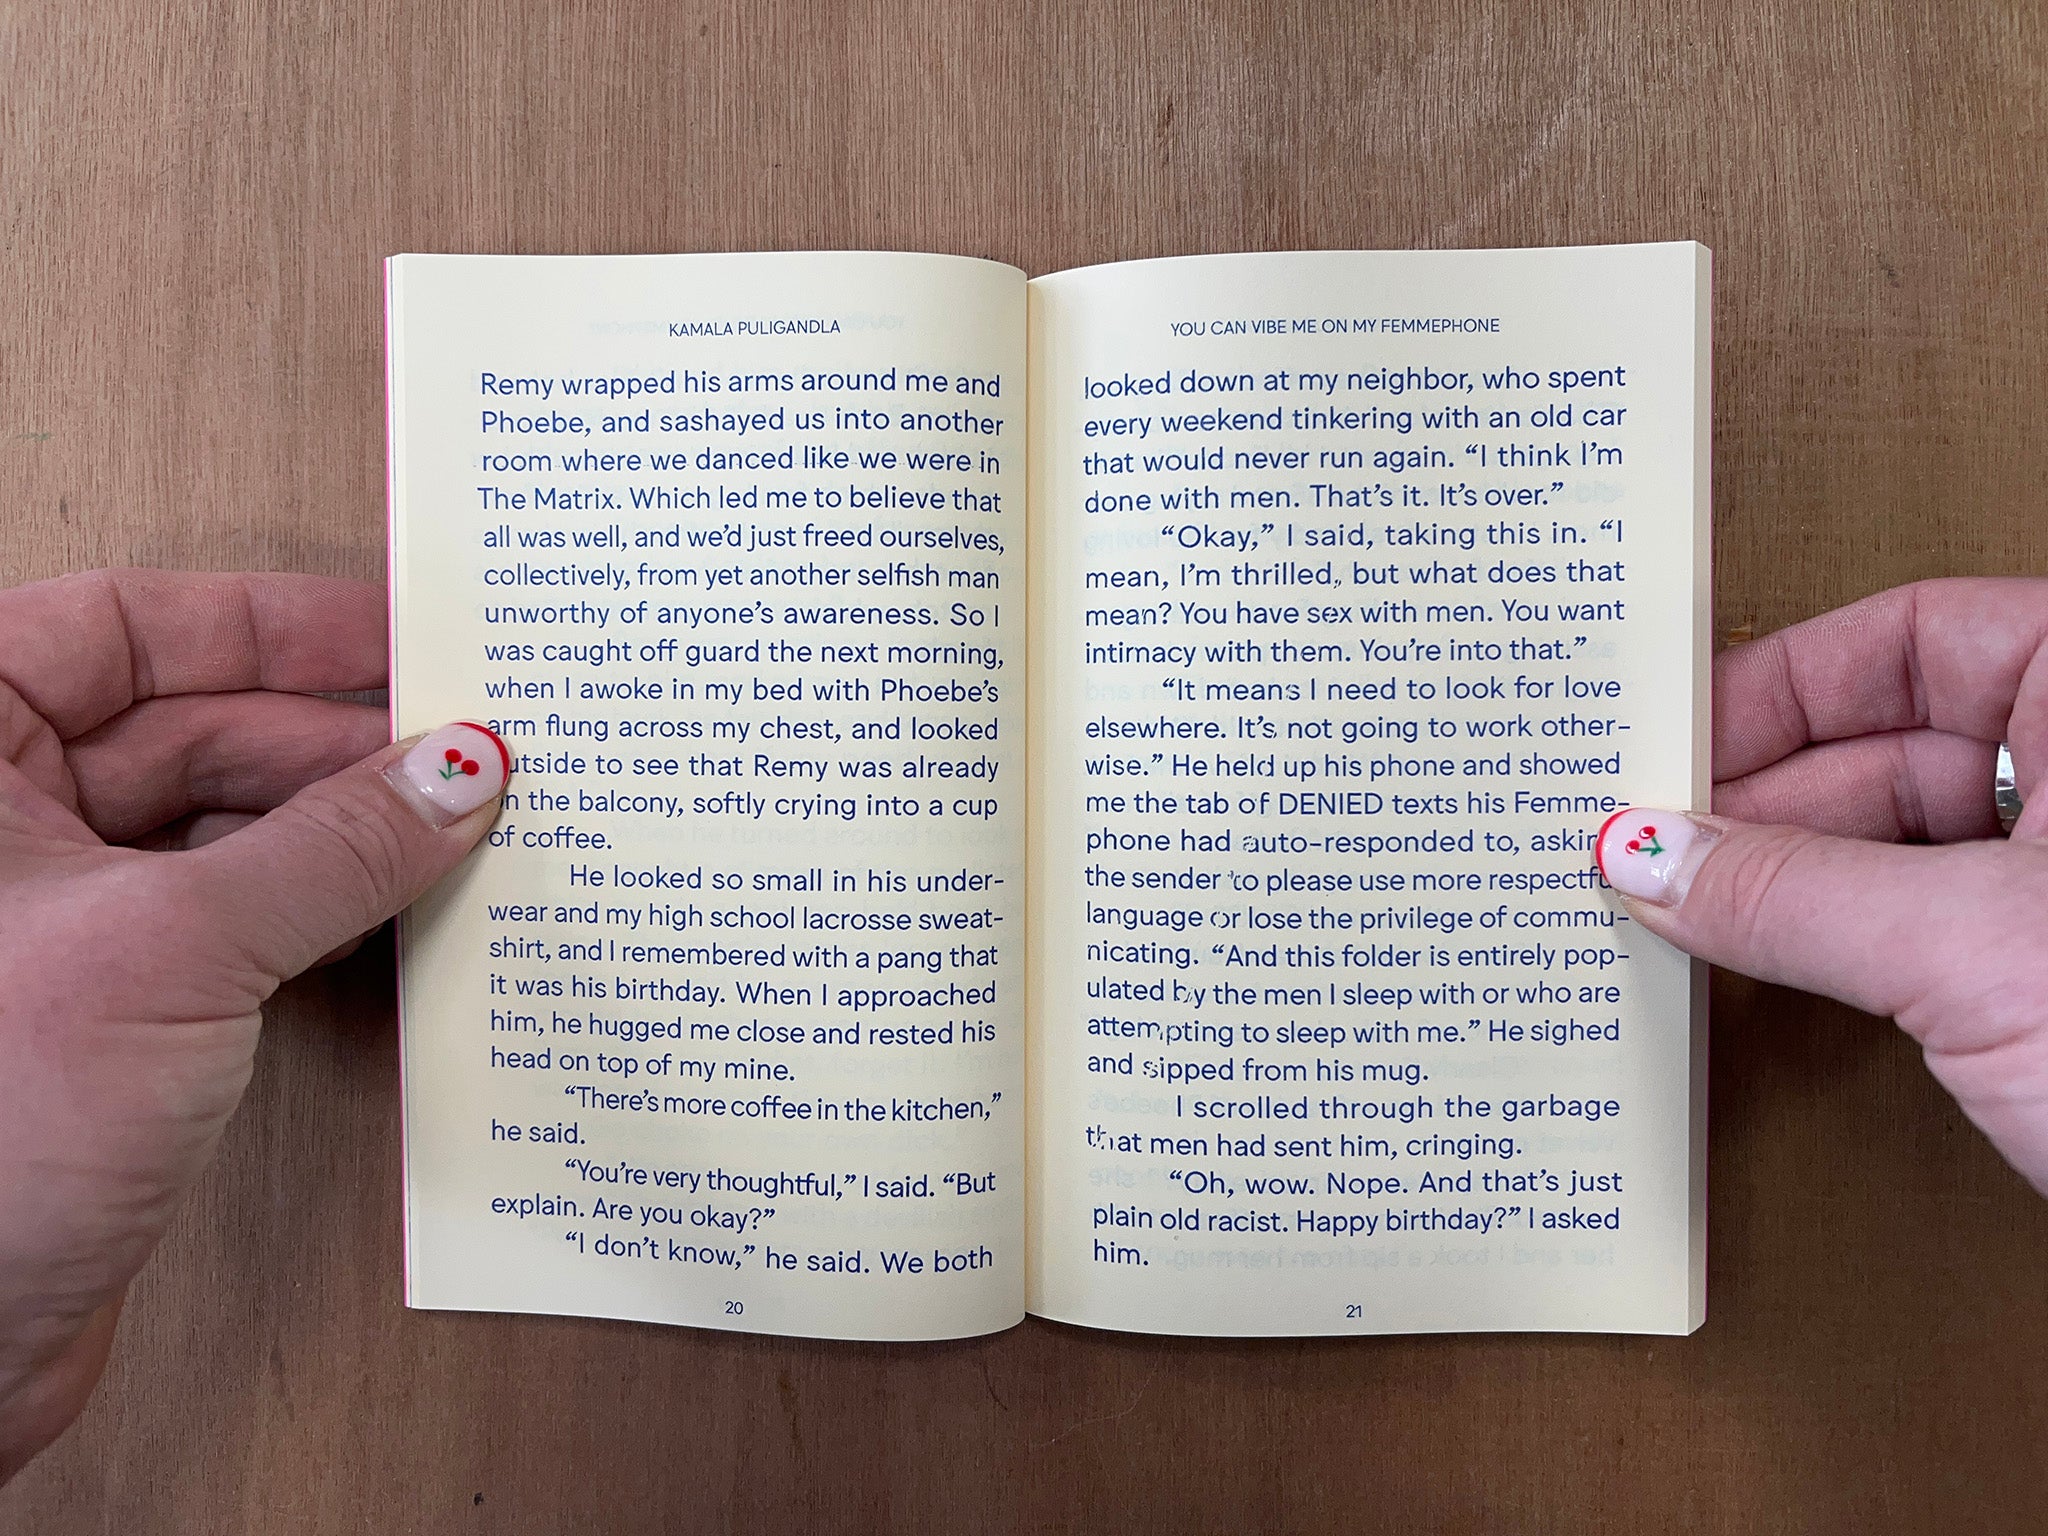 KAMALA PULIGANDLA
Remy wrapped his arms around me and
Phoebe, and sashayed us into another
room where we danced like we were in
The Matrix. Which led me to believe that
all was well, and we’d just freed ourselves,
collectively, from yet another selfish man
unworthy of anyone’s awareness. So I
was caught off guard the next morning,
when I awoke in my bed with Phoebe’s
arm flung across my chest, and looked
utside to see that Remy was already
n the balcony, softly crying into a cup
of coffee.
He looked so small in his under-
wear and my high school lacrosse sweat-
shirt, and I remembered with a pang that
it was his birthday. When I approached
him, he hugged me close and rested his
head on top of my mine.
“There’s more coffee in the kitchen,”
he said.
“You’re very thoughtful,” I said. “But
explain. Are you okay?”
“I don’t know,” he said. We both
20
YOU CAN VIBE ME ON MY FEMMEPHONE
looked down at my neighbor, who spent
every weekend tinkering with an old car
that would never run again. “I think I’m
done with men. That’s it. It’s over.”
“Okay,” I said, taking this in. “I
mean, I’m thrilled, but what does that
mean? You have sex with men. You want
intimacy with them. You’re into that.”
“It means I need to look for love
elsewhere. It’s not going to work other-
wise.” He held up his phone and showed
me the tab of DENIED texts his Femme-
phone had auto-responded to, askin
the sender to please use more respectfu
language or lose the privilege of commu-
nicating. “And this folder is entirely pop-
ulated by the men I sleep with or who are
attempting to sleep with me.” He sighed
and sipped from his mug.
I scrolled through the garbage
that men had sent him, cringing.
“Oh, wow. Nope. And that’s just
plain old racist. Happy birthday?” I asked
him.
21